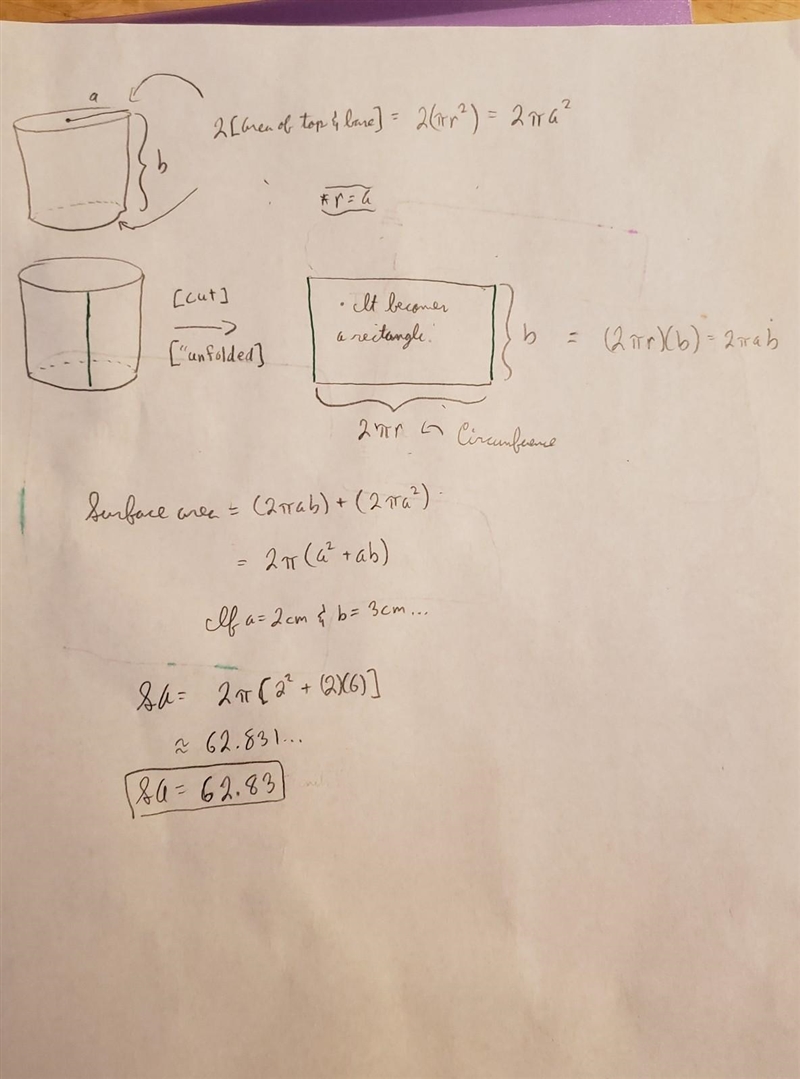 a
2[area of top & base] = 2(πr²) = 2πa²
b
*r = a
[cut]
["unfolded]
• It becomes
a rectangle.
b = (2πr)(b) = 2πab
2πr ↩ Circumference
Surface area = (2πab) + (2πa²)
= 2π(a² + ab)
If a = 2cm & b = 3cm...
SA = 2π[2² + (2)(6)]
≈ 62.831...
SA = 62.83